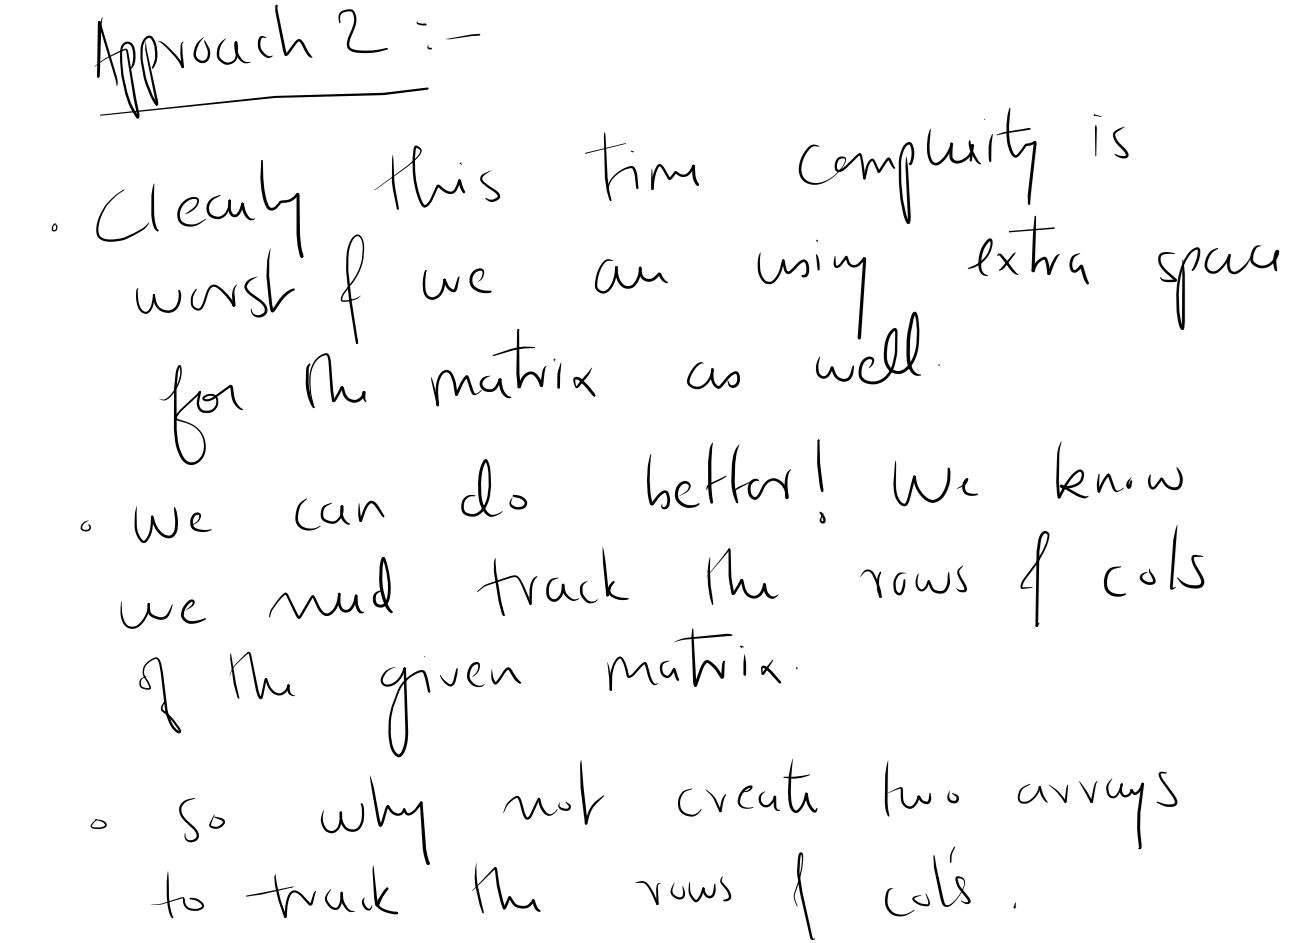 Approach 2 :-
• Clearly this time complexity is
worst & we are using extra space
for the matrix as well.
• We can do better! We know
we need track the rows & cols
of the given matrix.
• So why not create two arrays
to track the rows & col's.